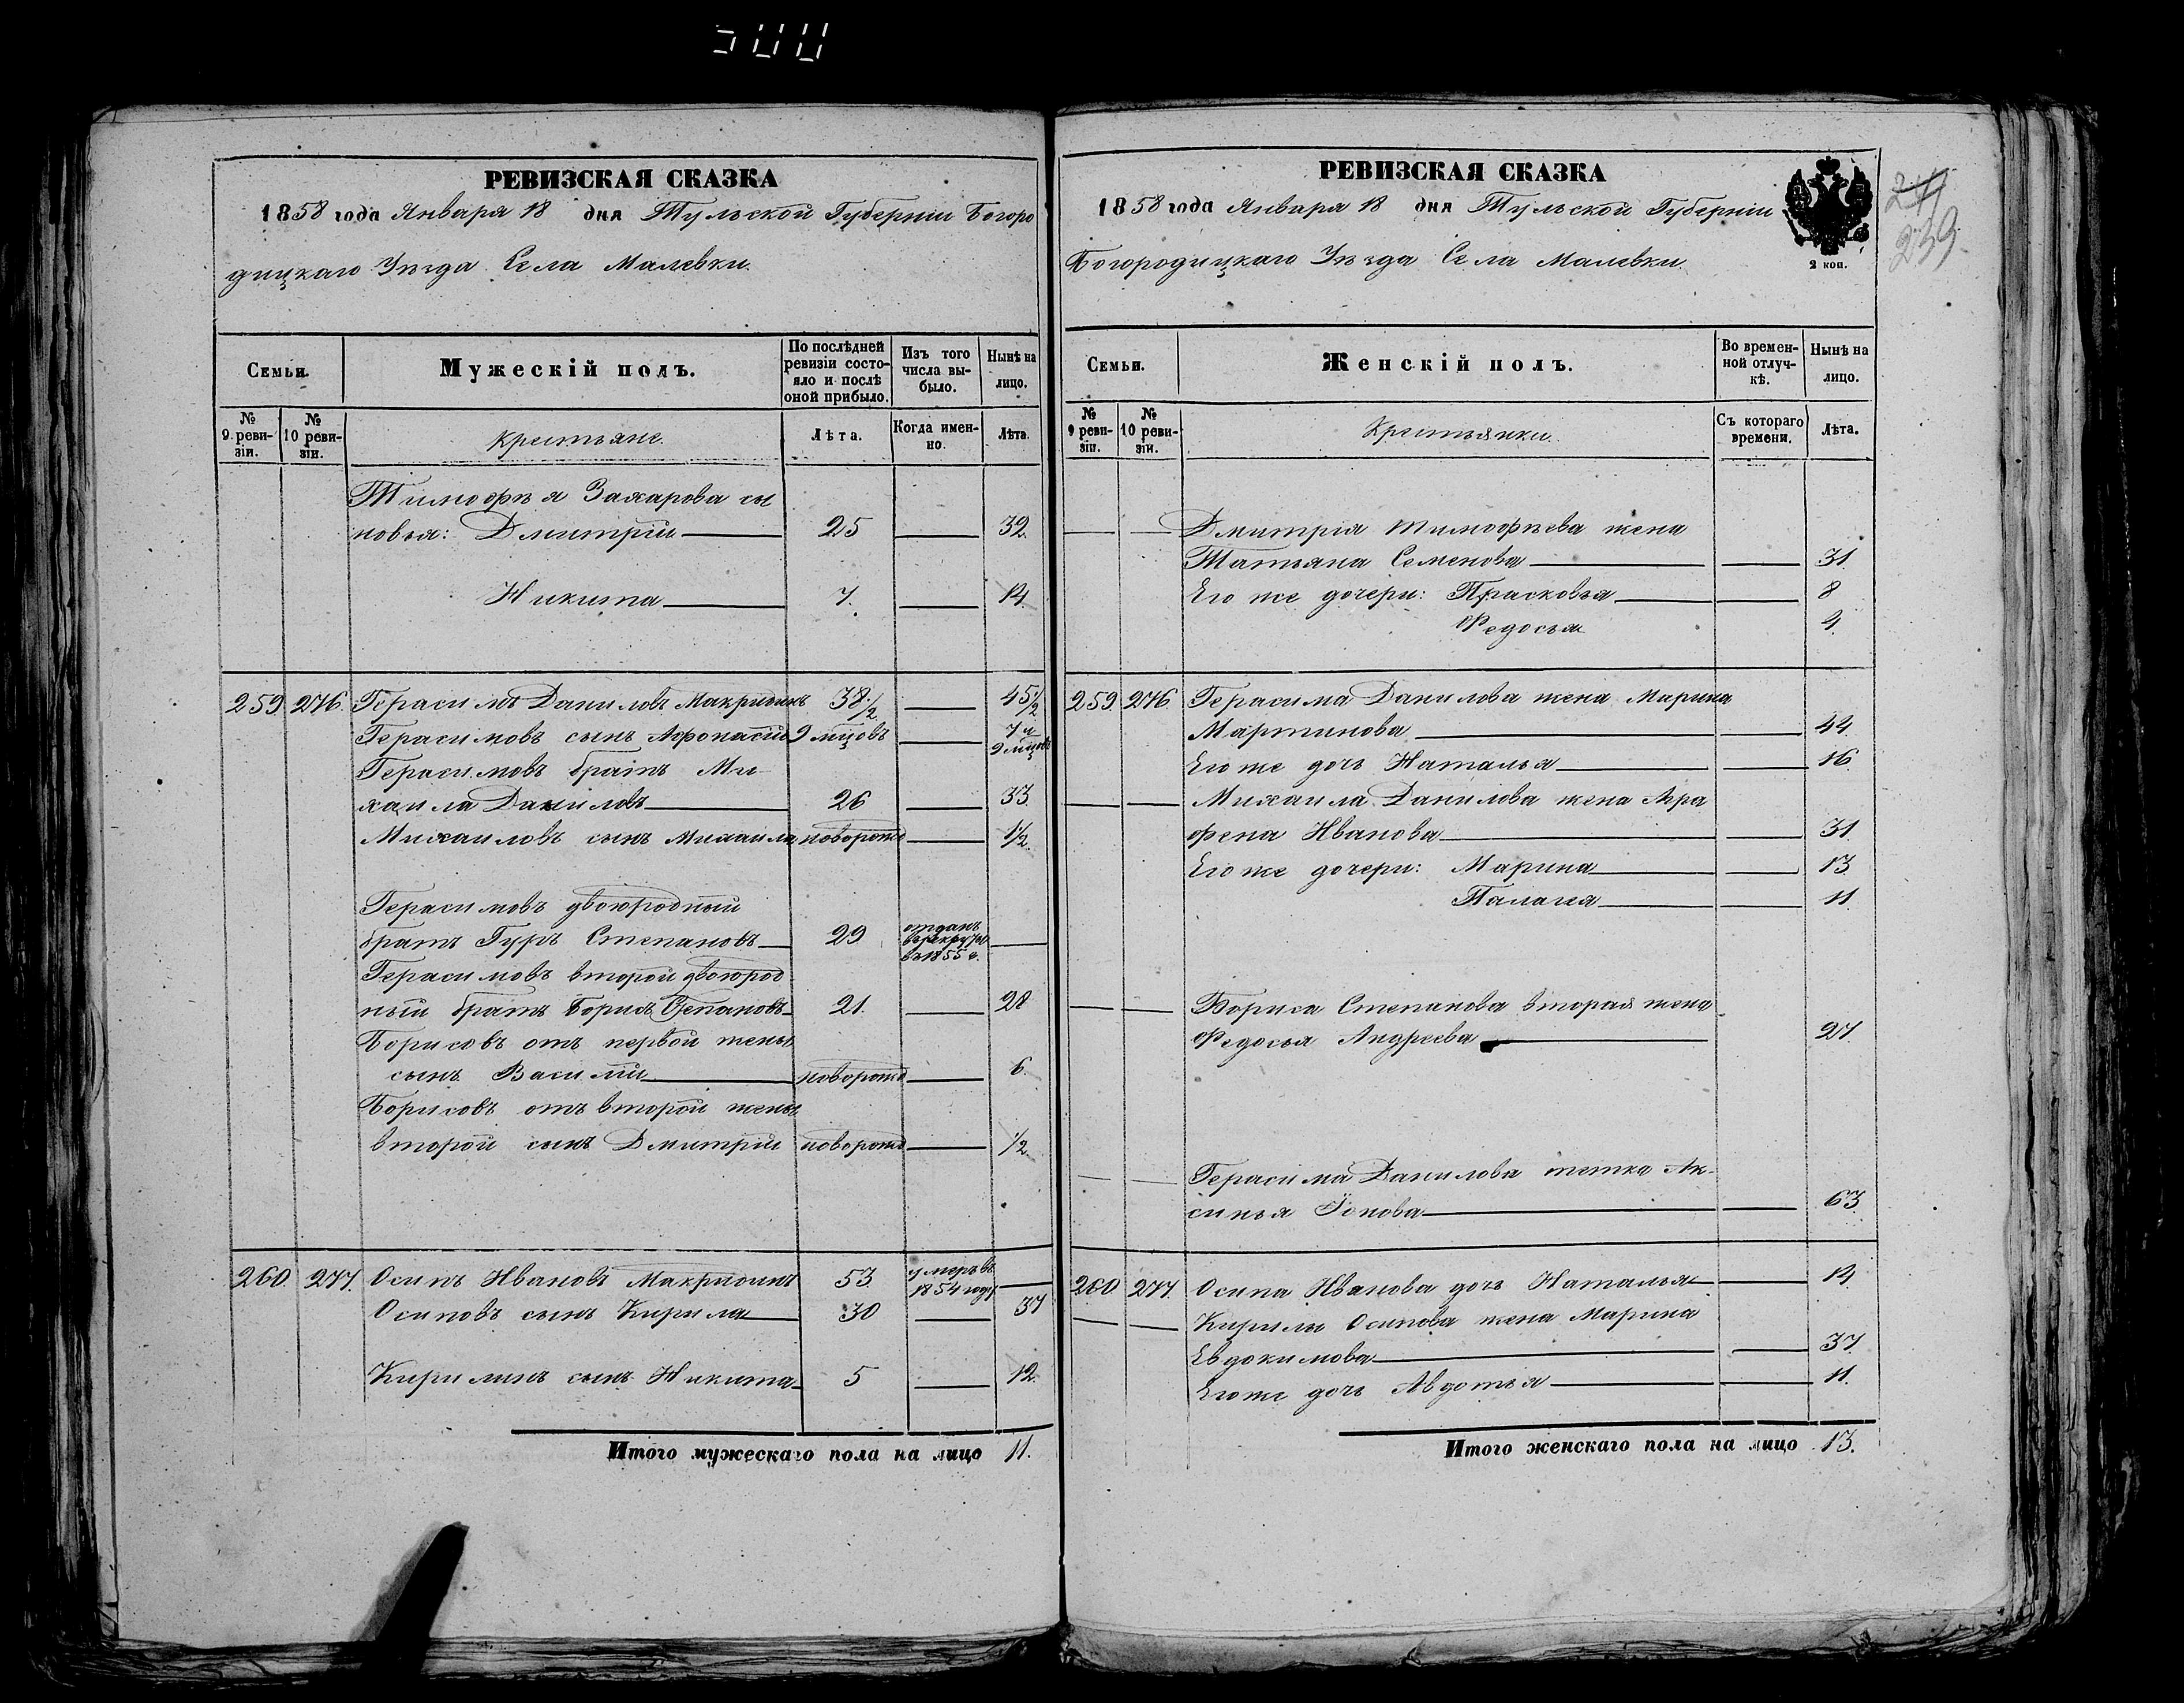 500
РЕВИЗСКАЯ СКАЗКА
1858 года Января 18 дня Тульской Губерніи Богоро
дицкаго Уѣзда Села Малевки.
Семьи.
Мужескій полъ.
По послѣдней ревизіи состояло и послѣ оной прибыло.
Изъ того числа выбыло.
Нынѣ на лицо.
№ 9 ревизіи.
№ 10 ревизіи.
Крестьяне.
Лѣта.
Когда именно.
Лѣта.
Тимофѣя Захарова сы
новья: Дмитрій 25 32
Никита 7. 14
259 276. Герасимъ Даниловъ Макридинъ 38 1/2 45 1/2
Герасимовъ сынъ Афонасій 9 мцовъ 7 и 9 мцовъ
Герасимовъ братъ Ми
хаила Даниловъ 26 33
Михаиловъ сынъ Михаила новорожд 1 1/2
Герасимовъ двоюродный
братъ Гуръ Степановъ 29 отданъ въ рекруты въ 1855 г.
Герасимовъ второй двоюрод
ный братъ Борисъ Степановъ 21. 28
Борисовъ отъ первой жены
сынъ Василій новорожд 6
Борисовъ отъ второй жены
второй сынъ Дмитрій новорожд 1/2
260 277. Осипъ Ивановъ Макридинъ 53 умеръ въ 1854 году
Осиповъ сынъ Кирила 30 37
Кирилинъ сынъ Никита 5 12
Итого мужескаго пола на лицо 11.
РЕВИЗСКАЯ СКАЗКА
1858 года Января 18 дня Тульской Губерніи
Богородицкаго Уѣзда Села Малевки.
2 коп.
239
Семьи.
Женскій полъ.
Во временной отлучкѣ.
Нынѣ на лицо.
№ 9 ревизіи.
№ 10 ревизіи.
Крестьянки.
Съ котораго времени.
Лѣта.
Дмитрія Тимофѣева жена
Татьяна Семенова 31
Его же дочери: Прасковья 8
Федосья 4
259 276 Герасима Данилова жена Марина
Мартинова 44
Его же дочь Наталья 16
Михаила Данилова жена Агра
фена Иванова 31
Его же дочери: Марина 13
Палагея 11
Бориса Степанова вторая жена
Федосья Андреева 27
Герасима Данилова тетка Ак-
синья Іонова 63
260 277. Осипа Иванова дочь Наталья 14
Кирилы Осипова жена Марина
Евдокимова 37
Его же дочь Авдотья 11.
Итого женскаго пола на лицо 13.